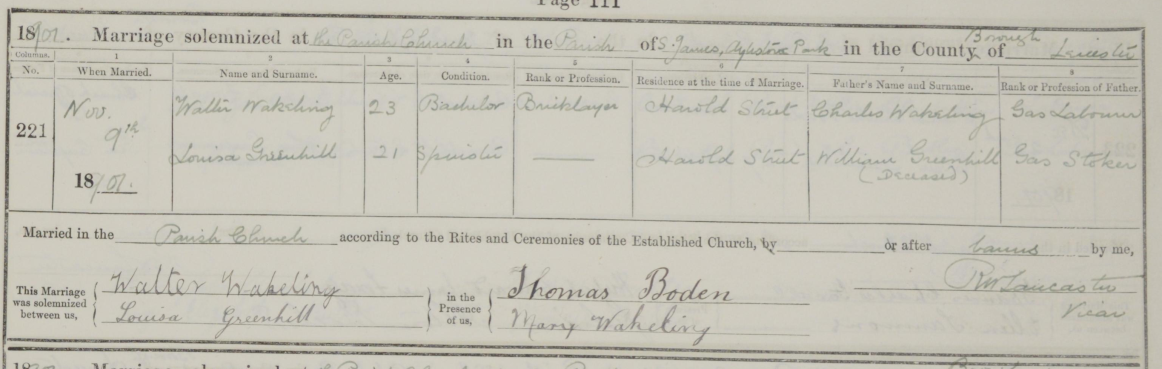 Page 111
1901. Marriage solemnized at the Parish Church in the Parish of S. James, Aylestone Park in the County Borough of Leicester
Columns. 1 2 3 4 5 6 7 8
No. When Married. Name and Surname. Age. Condition. Rank or Profession. Residence at the time of Marriage. Father's Name and Surname. Rank or Profession of Father.
221 Nov. 9th 1901. Walter Wakeling 23 Bachelor Bricklayer Harold Street Charles Wakeling Gas Labourer
Louisa Greenhill 21 Spinster Harold Street William Greenhill (Deceased) Gas Stoker
Married in the Parish Church according to the Rites and Ceremonies of the Established Church, by or after banns by me,
This Marriage was solemnized between us, Walter Wakeling in the Presence of us, Thomas Boden Lancaster
Louisa Greenhill Mary Wakeling Vicar